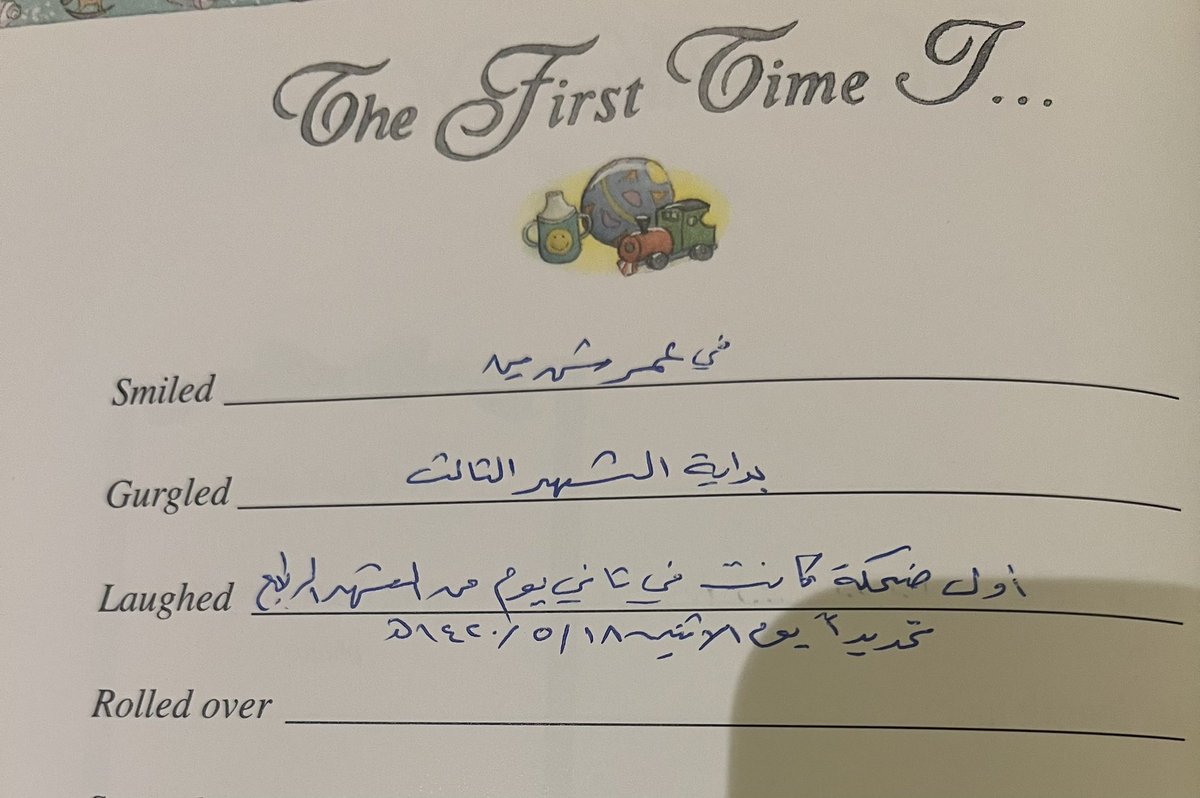 The First Time I...
Smiled في عمر شهرين
Gurgled بداية الشهر الثالث
Laughed أول ضحكة كانت في ثاني يوم من الشهر الرابع
تحديداً يوم الاثنين ١٨/٥/١٤٢٠هـ
Rolled over